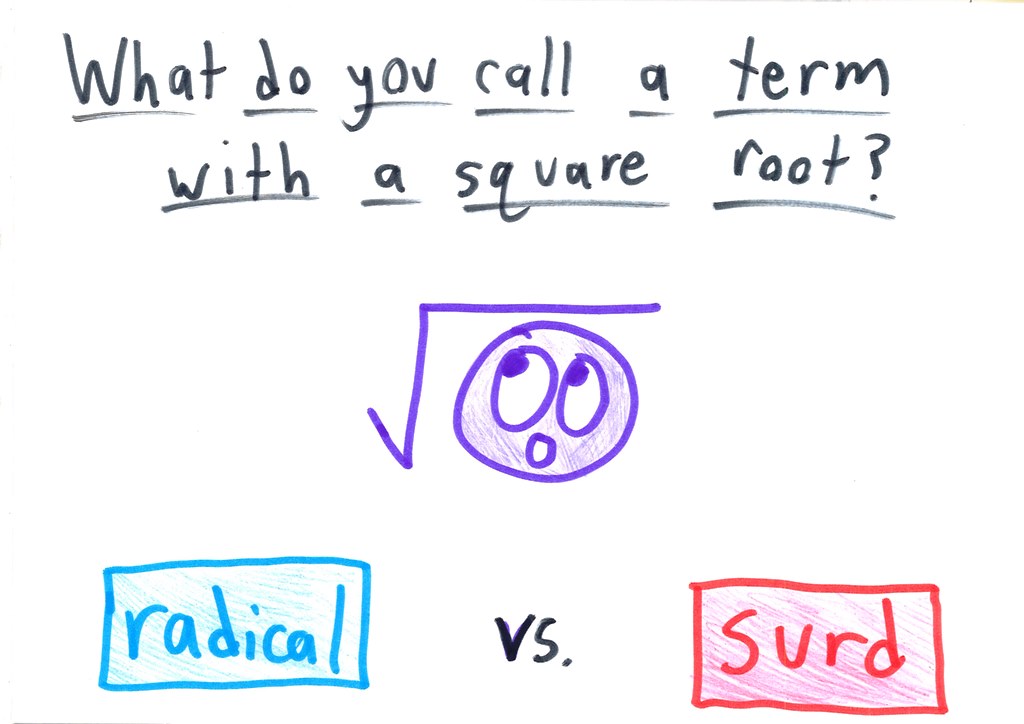 What do you call a term
with a square root?
radical vs. surd